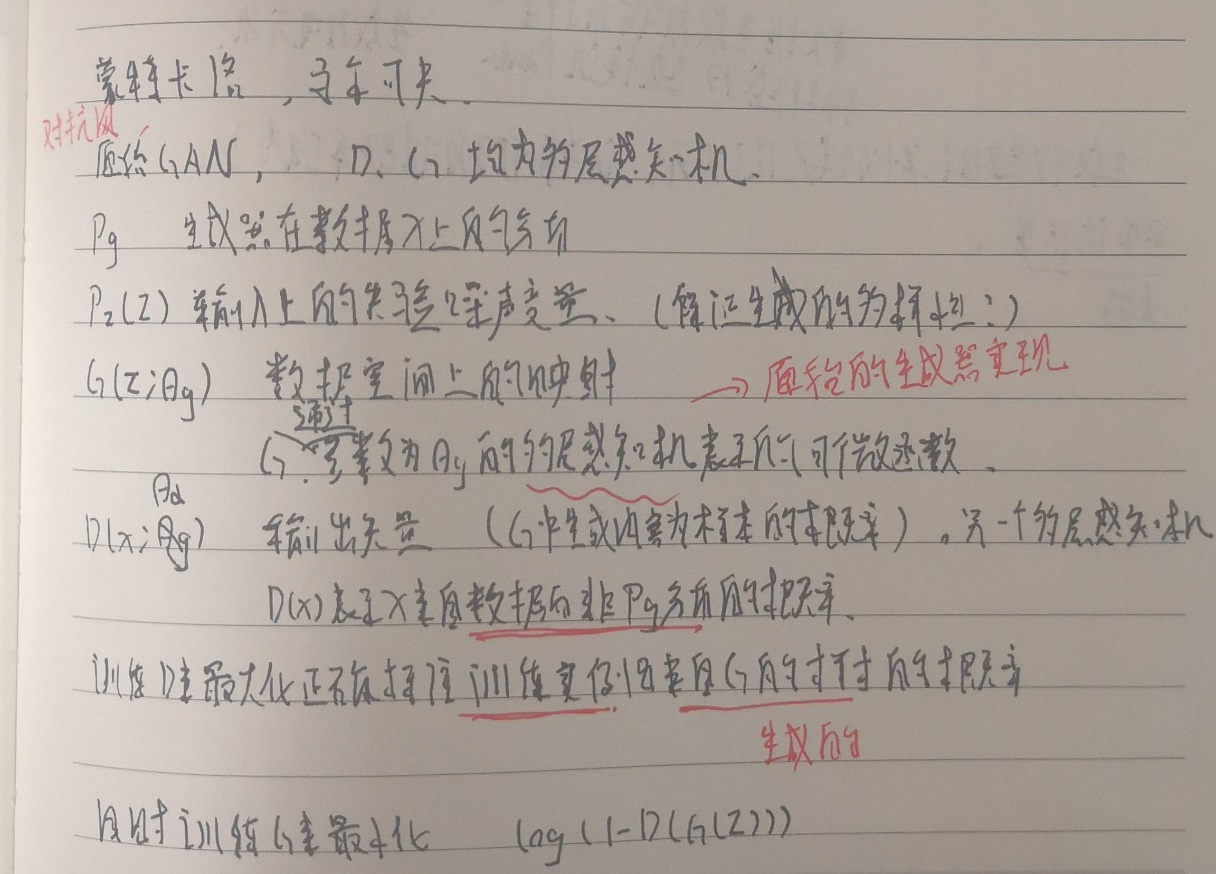 蒙特卡洛，马尔可夫.
对抗网
原始GAN, D、G 均为多层感知机.
Pg 生成器在数据x上的分布
Pz(Z) 输入上的先验噪声变量、(保证生成的多样性:)
G(Z;θg) 数据空间上的映射 → 原始的生成器实现
通过
G 参数为θg的多层感知机表示的可微函数.
θd
D(x;θg) 输出矢量 (G中生成内容为样本的概率)。另一个多层感知机
D(x)表示x来自数据而非Pg分布的概率.
训练D来最大化正确标注训练实例和来自G的样本的概率
生成的
同时训练G来最小化 log(1-D(G(Z)))